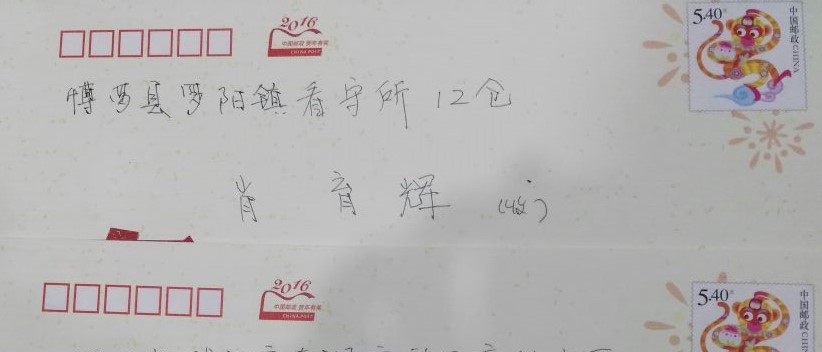 2016
中国邮政 贺年有奖
CHINA POST
5.40元
中国邮政CHINA
博罗县罗阳镇看守所12仓
肖育辉(收)
2016
中国邮政 贺年有奖
CHINA POST
5.40元
中国邮政